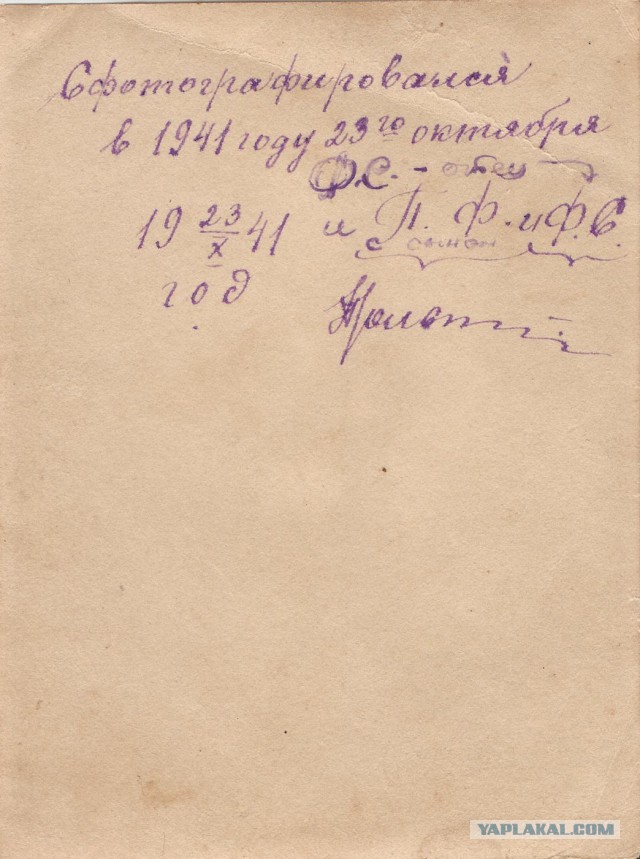 Сфотографировался
в 1941 году 23го октября
Ф.С. - отец
19 23/X 41 и П. Ф. и Ф. С.
с сыном
год
YAPLAKAL.COM